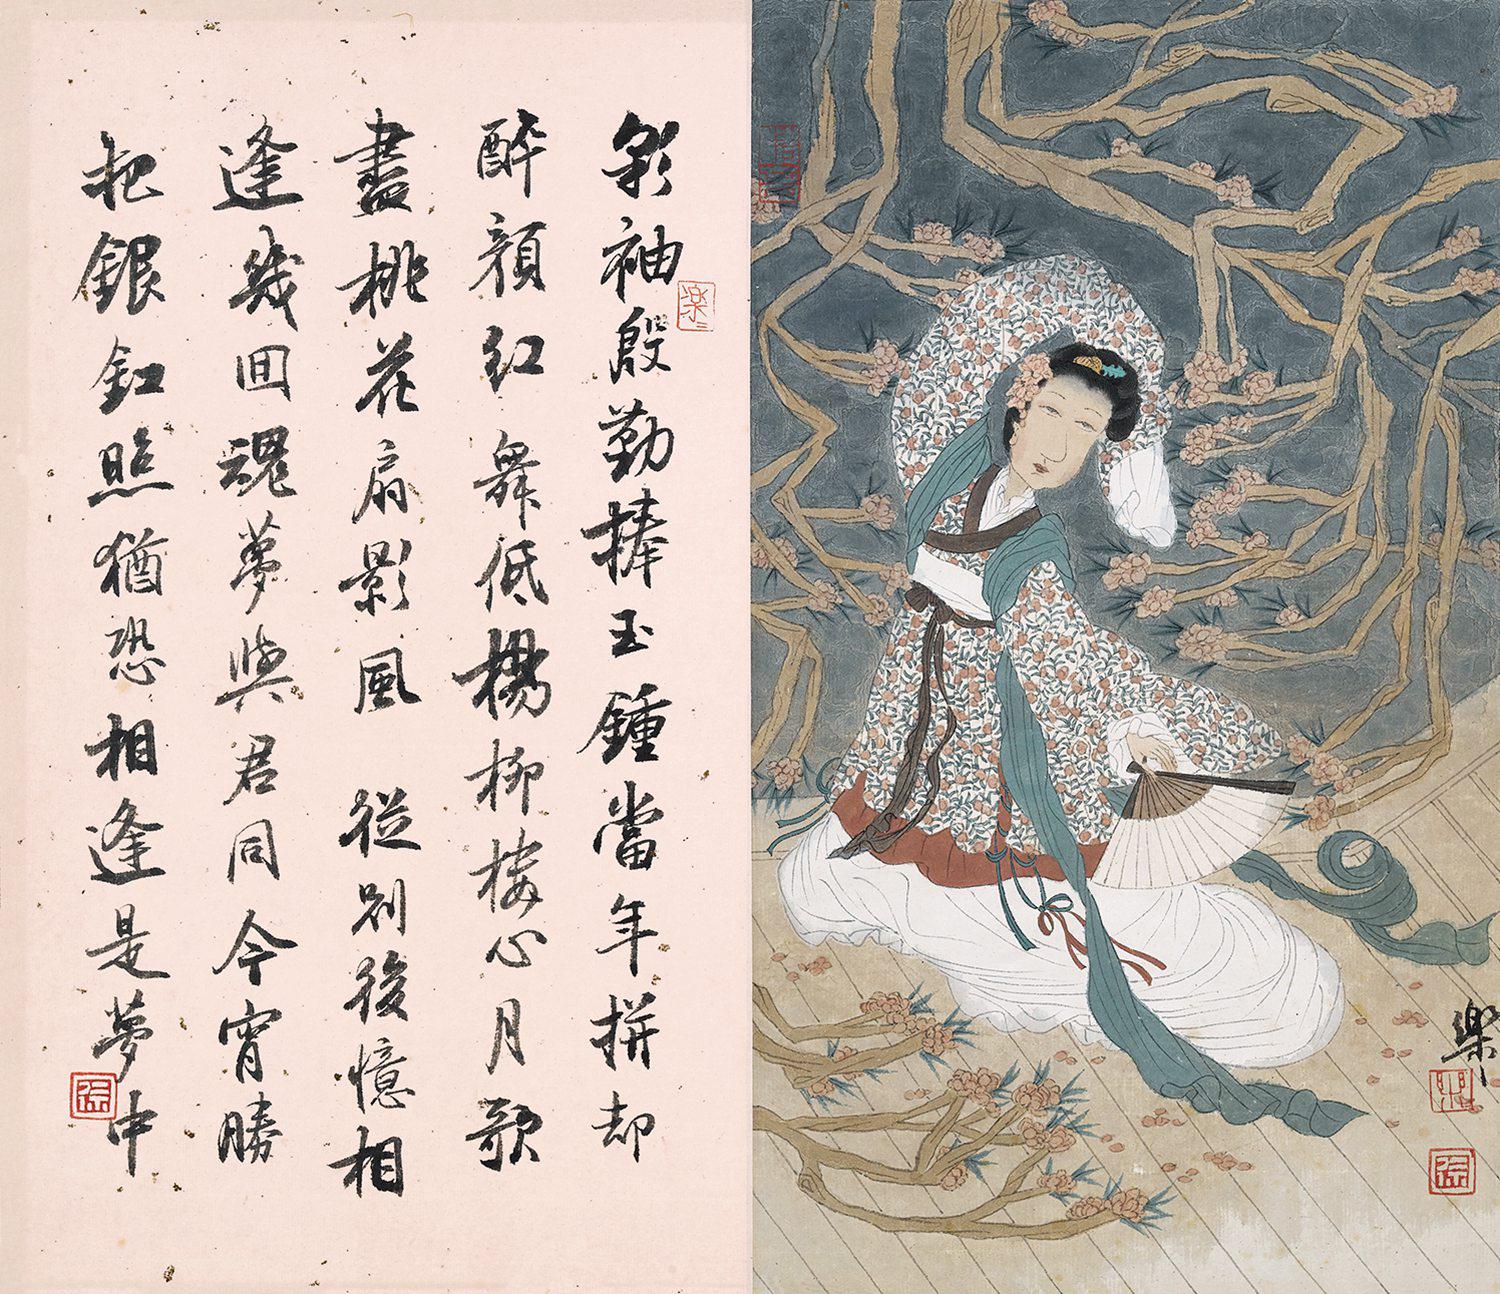 彩袖殷勤捧玉鍾當年拼却
醉顏紅舞低楊柳樓心月歌
盡桃花扇影風 從別後憶相
逢幾回魂夢與君同今宵勝
把銀釭照猶恐相逢是夢中
徐
樂
徐